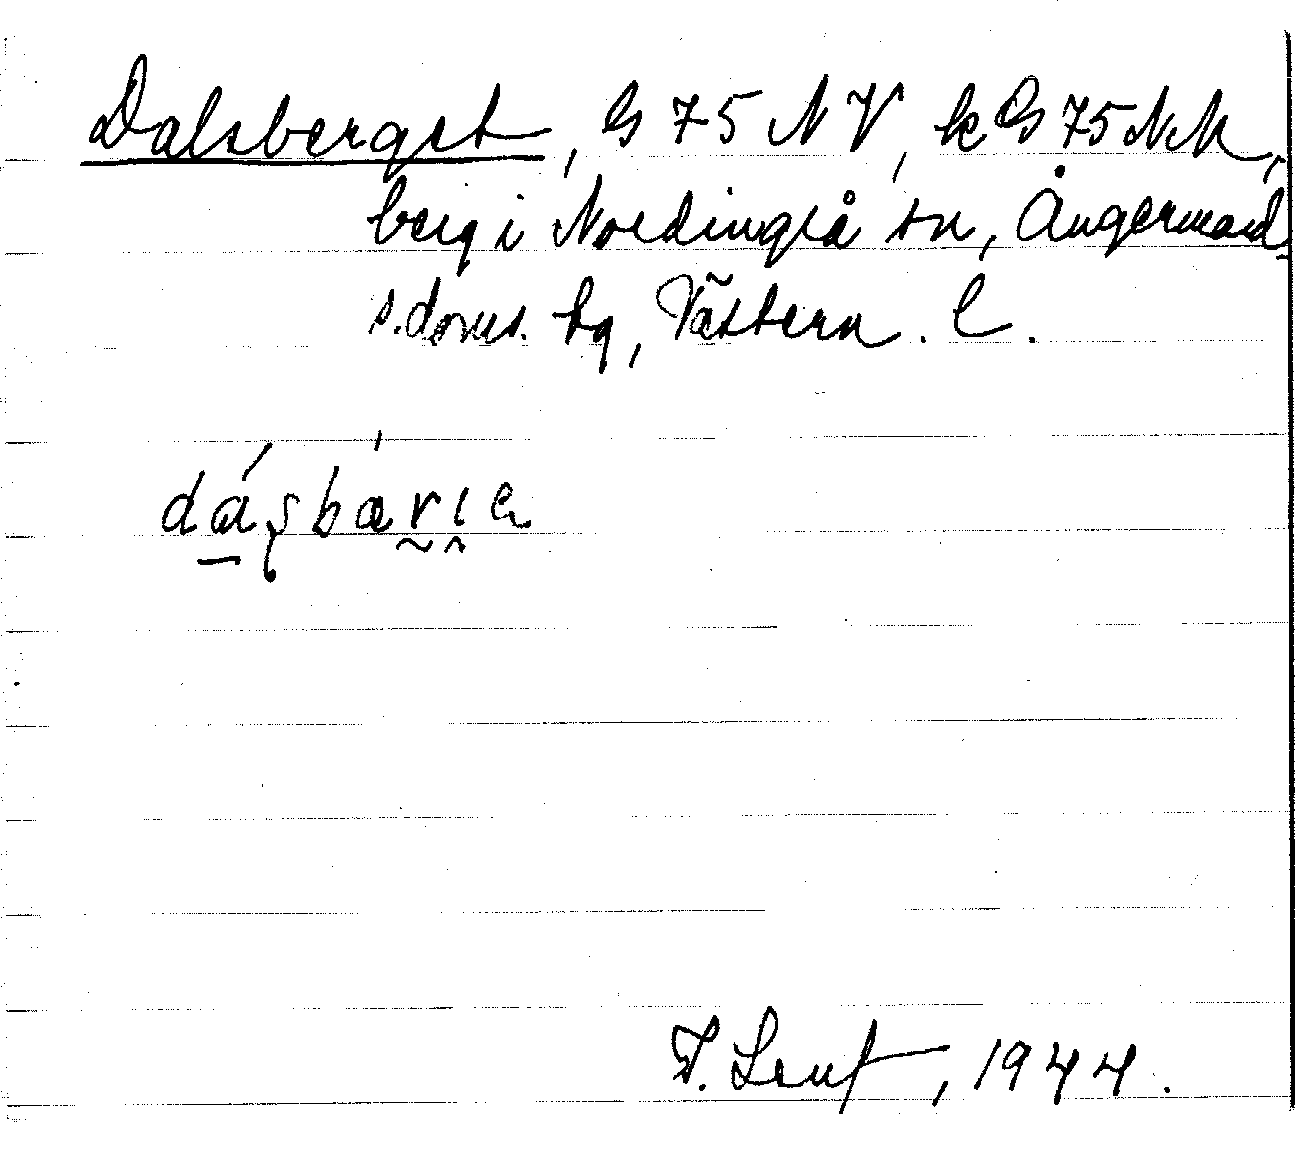 Dalsberget, G 75 NV, k G 75 NN,
berg i Nordingrå sn, Ångermanl.
s. doms. tg, Västern. l.
dásbærıe
F. Leuf, 1944.